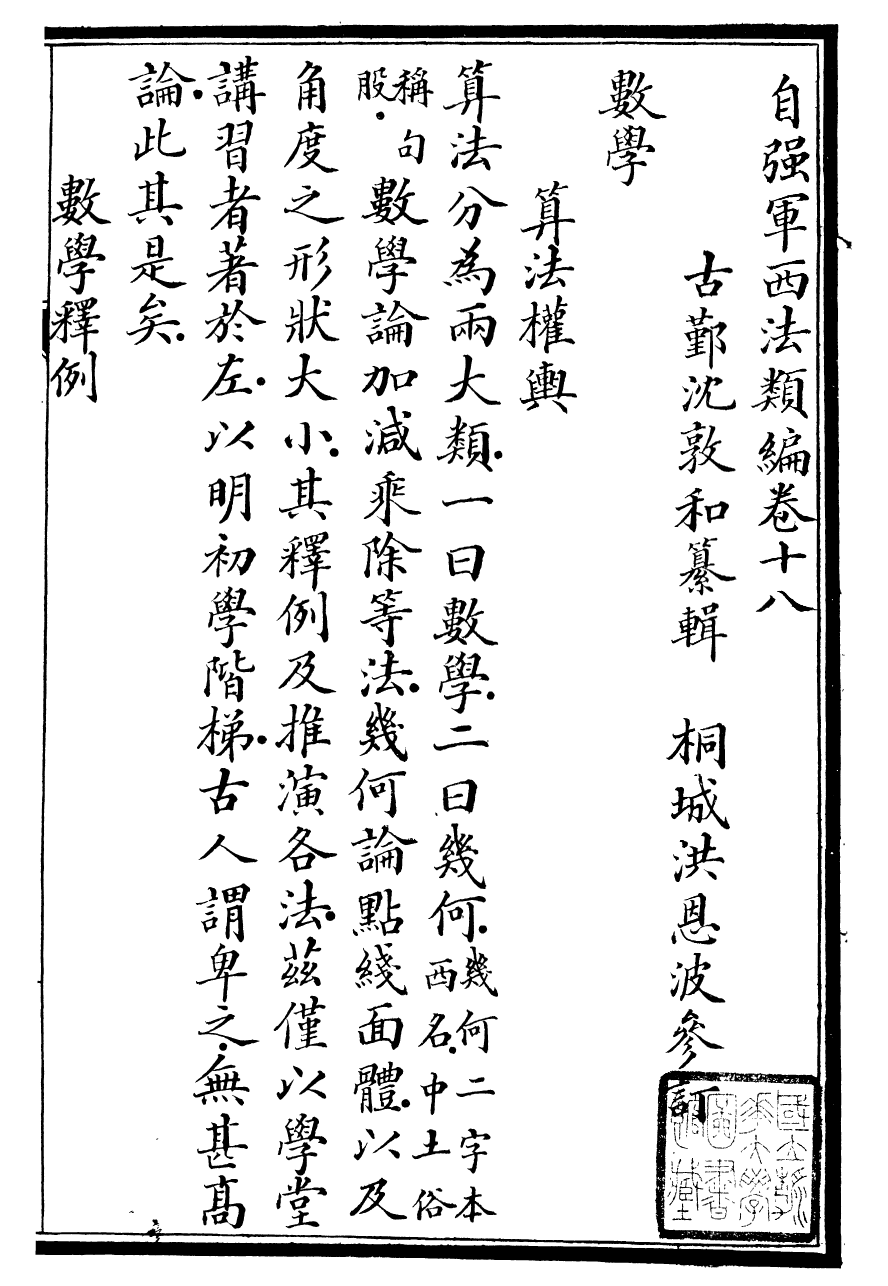 自强軍西法類編卷十八
古鄞沈敦和纂輯　桐城洪恩波參訂
數學
算法權輿
算法分為兩大類．一曰數學．二曰幾何．幾何二字本西名．中土俗
稱句股．數學論加減乘除等法．幾何論點綫面體．以及
角度之形狀大小．其釋例及推演各法．茲僅以學堂
講習者著於左．以明初學階梯．古人謂卑之．無甚高
論．此其是矣．
數學釋例
國立浙
江大學
圖書
館藏